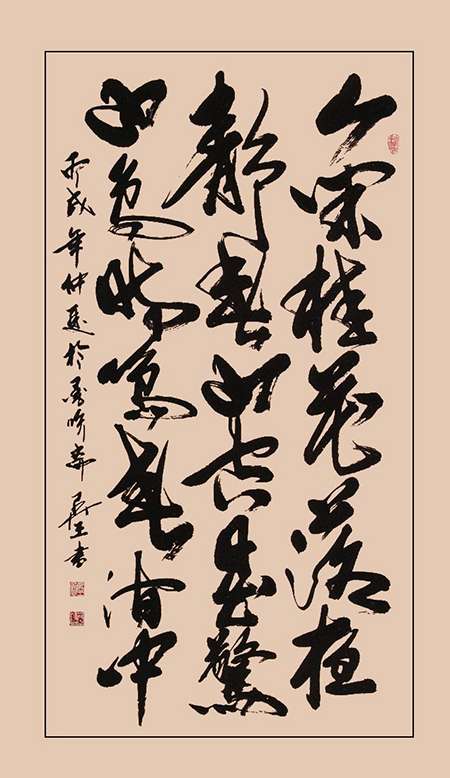 人閒桂花落夜
靜春山空月出驚
山鳥時鳴春澗中
丙戌年仲夏於墨吟齋 書